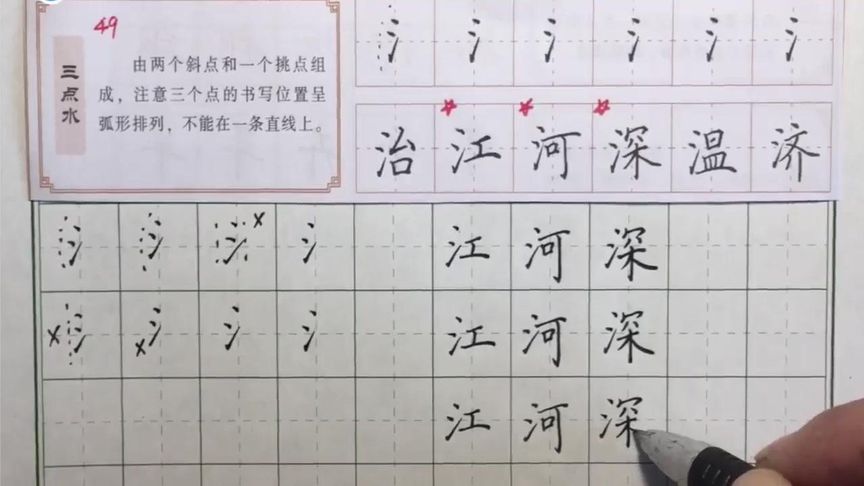 49
三点水
由两个斜点和一个挑点组
成，注意三个点的书写位置呈
弧形排列，不能在一条直线上。
氵 氵 氵 氵 氵 氵
治 江 河 深 温 济
氵 氵 氵 x 氵 江 河 深
x 氵 x 氵 氵 氵 江 河 深
江 河 深